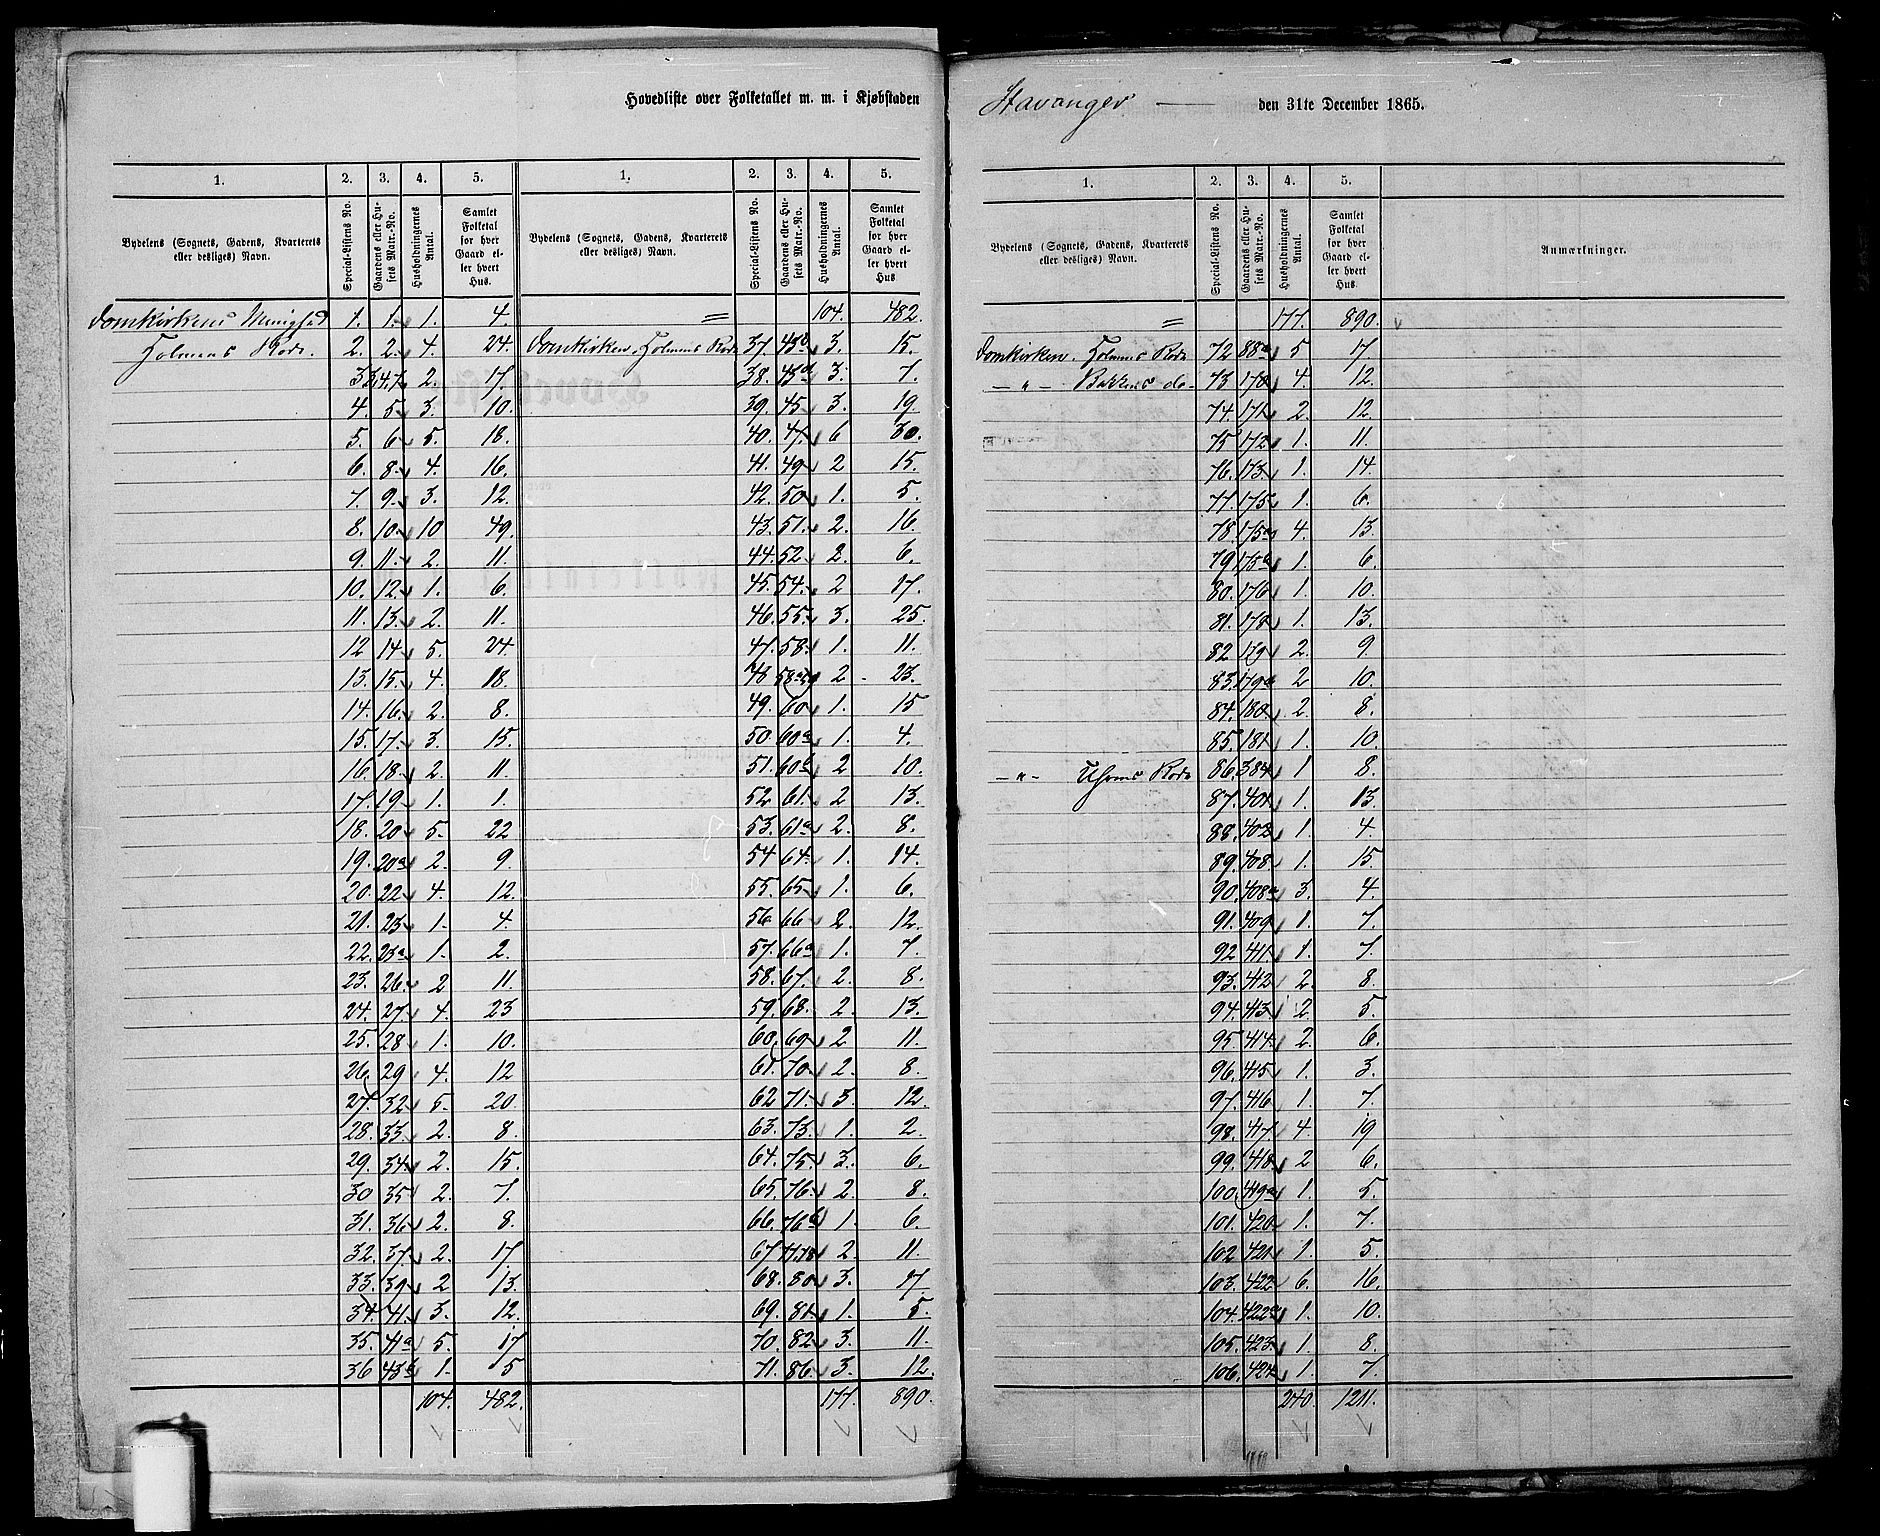 Hovedliste over Folketallet m. m. i Kjøbstaden Stavanger — den 31te December 1865.
1. 2. 3. 4. 5.
Bydelens (Sognets, Gadens, Kvarterets eller desliges) Navn. Special-Listens No. Gaardens eller Husets Matr.-No. Husholdningernes Antal. Samlet Folketal for hver Gaard eller hvert Hus.
Domkirkens Menighed 1. 1. 1. 4.
Holmens Rode. 2. 2. 4. 24.
3. 3,4,7 2. 17.
4. 5 3. 10.
5. 6 5. 18.
6. 8 4. 16.
7. 9. 3. 12.
8. 10 10 49.
9. 11. 2. 11.
10. 12. 1. 6.
11. 13. 2. 11.
12 14 5. 24.
13. 15. 4. 18.
14. 16. 2. 8.
15. 17. 3. 15.
16. 18. 2. 11.
17. 19. 1. 1.
18. 20 5. 22
19. 20a 2. 9.
20. 22 4. 12.
21. 23 1. 4.
22. 23a 1. 2.
23. 26. 2 11.
24. 27. 4. 23
25. 28 1. 10.
26. 29 4. 12
27. 32 5. 20.
28. 33. 2. 8.
29. 34 2. 15.
30 35 2. 7.
31. 36 2. 8.
32. 37. 2. 17.
33. 39 2 13.
34. 41. 3. 12.
35. 41a 5. 17
36 43b 1. 5
104. 482.
1. 2. 3. 4. 5.
Bydelens (Sognets, Gadens, Kvarterets eller desliges) Navn. Special-Listens No. Gaardens eller Husets Matr.-No. Husholdningernes Antal. Samlet Folketal for hver Gaard eller hvert Hus.
= 104. 482.
Domkirken. Holmens Rode 37. 3. 15.
38. 3. 7.
39. 45. 3. 19.
40. 47. 6 30.
41. 49 2 15.
42. 50 1. 5.
43. 51. 2. 16.
44. 52 2. 6.
45. 54. 2 17.
46. 55. 3. 25.
47. 58. 1. 11.
48 2 23.
49. 60 1. 15
50. 60a 1. 4.
51. 60b 2 10.
52 61. 2 13.
53. 61a 2. 8.
54 64. 1. 14.
55. 65 1. 6.
56 66 2. 12.
57. 66a 1. 7.
58. 67. 2. 8.
59. 68. 2. 13.
60. 69 2 11.
61. 70. 2. 8.
62 71. 3. 12.
63. 73. 1. 2.
64. 75. 3. 6.
65. 76 2. 8.
66. 76b 1. 6.
67 77.78 2. 11.
68. 80 3. 17.
69. 81 1. 5.
70. 82 3. 11.
71. 86 3. 12.
177. 890.
1. 2. 3. 4. 5.
Bydelens (Sognets, Gadens, Kvarterets eller desliges) Navn. Special-Listens No. Gaardens eller Husets Matr.-No. Husholdningernes Antal. Samlet Folketal for hver Gaard eller hvert Hus. Anmærkninger.
= 177. 890.
Domkirken. Holmens Rode 72 88a 5 17
— „ — Bakkens do 73 170 4. 12.
74. 171 2. 12.
75. 172 1. 11.
76. 173. 1. 14.
77. 175 1. 6.
78. 175a 4. 13.
79 175b 1. 6.
80. 176 1. 10.
81. 178 1. 13.
82 179 2. 9.
83. 179a 2 10.
84. 180 2. 8.
85. 181 1. 10.
— „ — Rode 86. 384 1 8.
87. 401 1. 13.
88. 402 1. 4.
89. 408 1. 15.
90. 408a 3. 4.
91. 409 1. 7.
92 411. 1. 7.
93. 412 2. 8.
94. 413 2. 5.
95. 414 2. 6.
96. 415 1. 3.
97. 416 1. 7.
98. 417 4. 19
99. 418 2 6.
100. 419a 1. 5.
101. 420 1. 7.
102. 421 1. 5.
103. 422 6. 16.
104. 422a 1. 10.
105. 423. 1. 8.
106. 424 1. 7.
240. 1211.